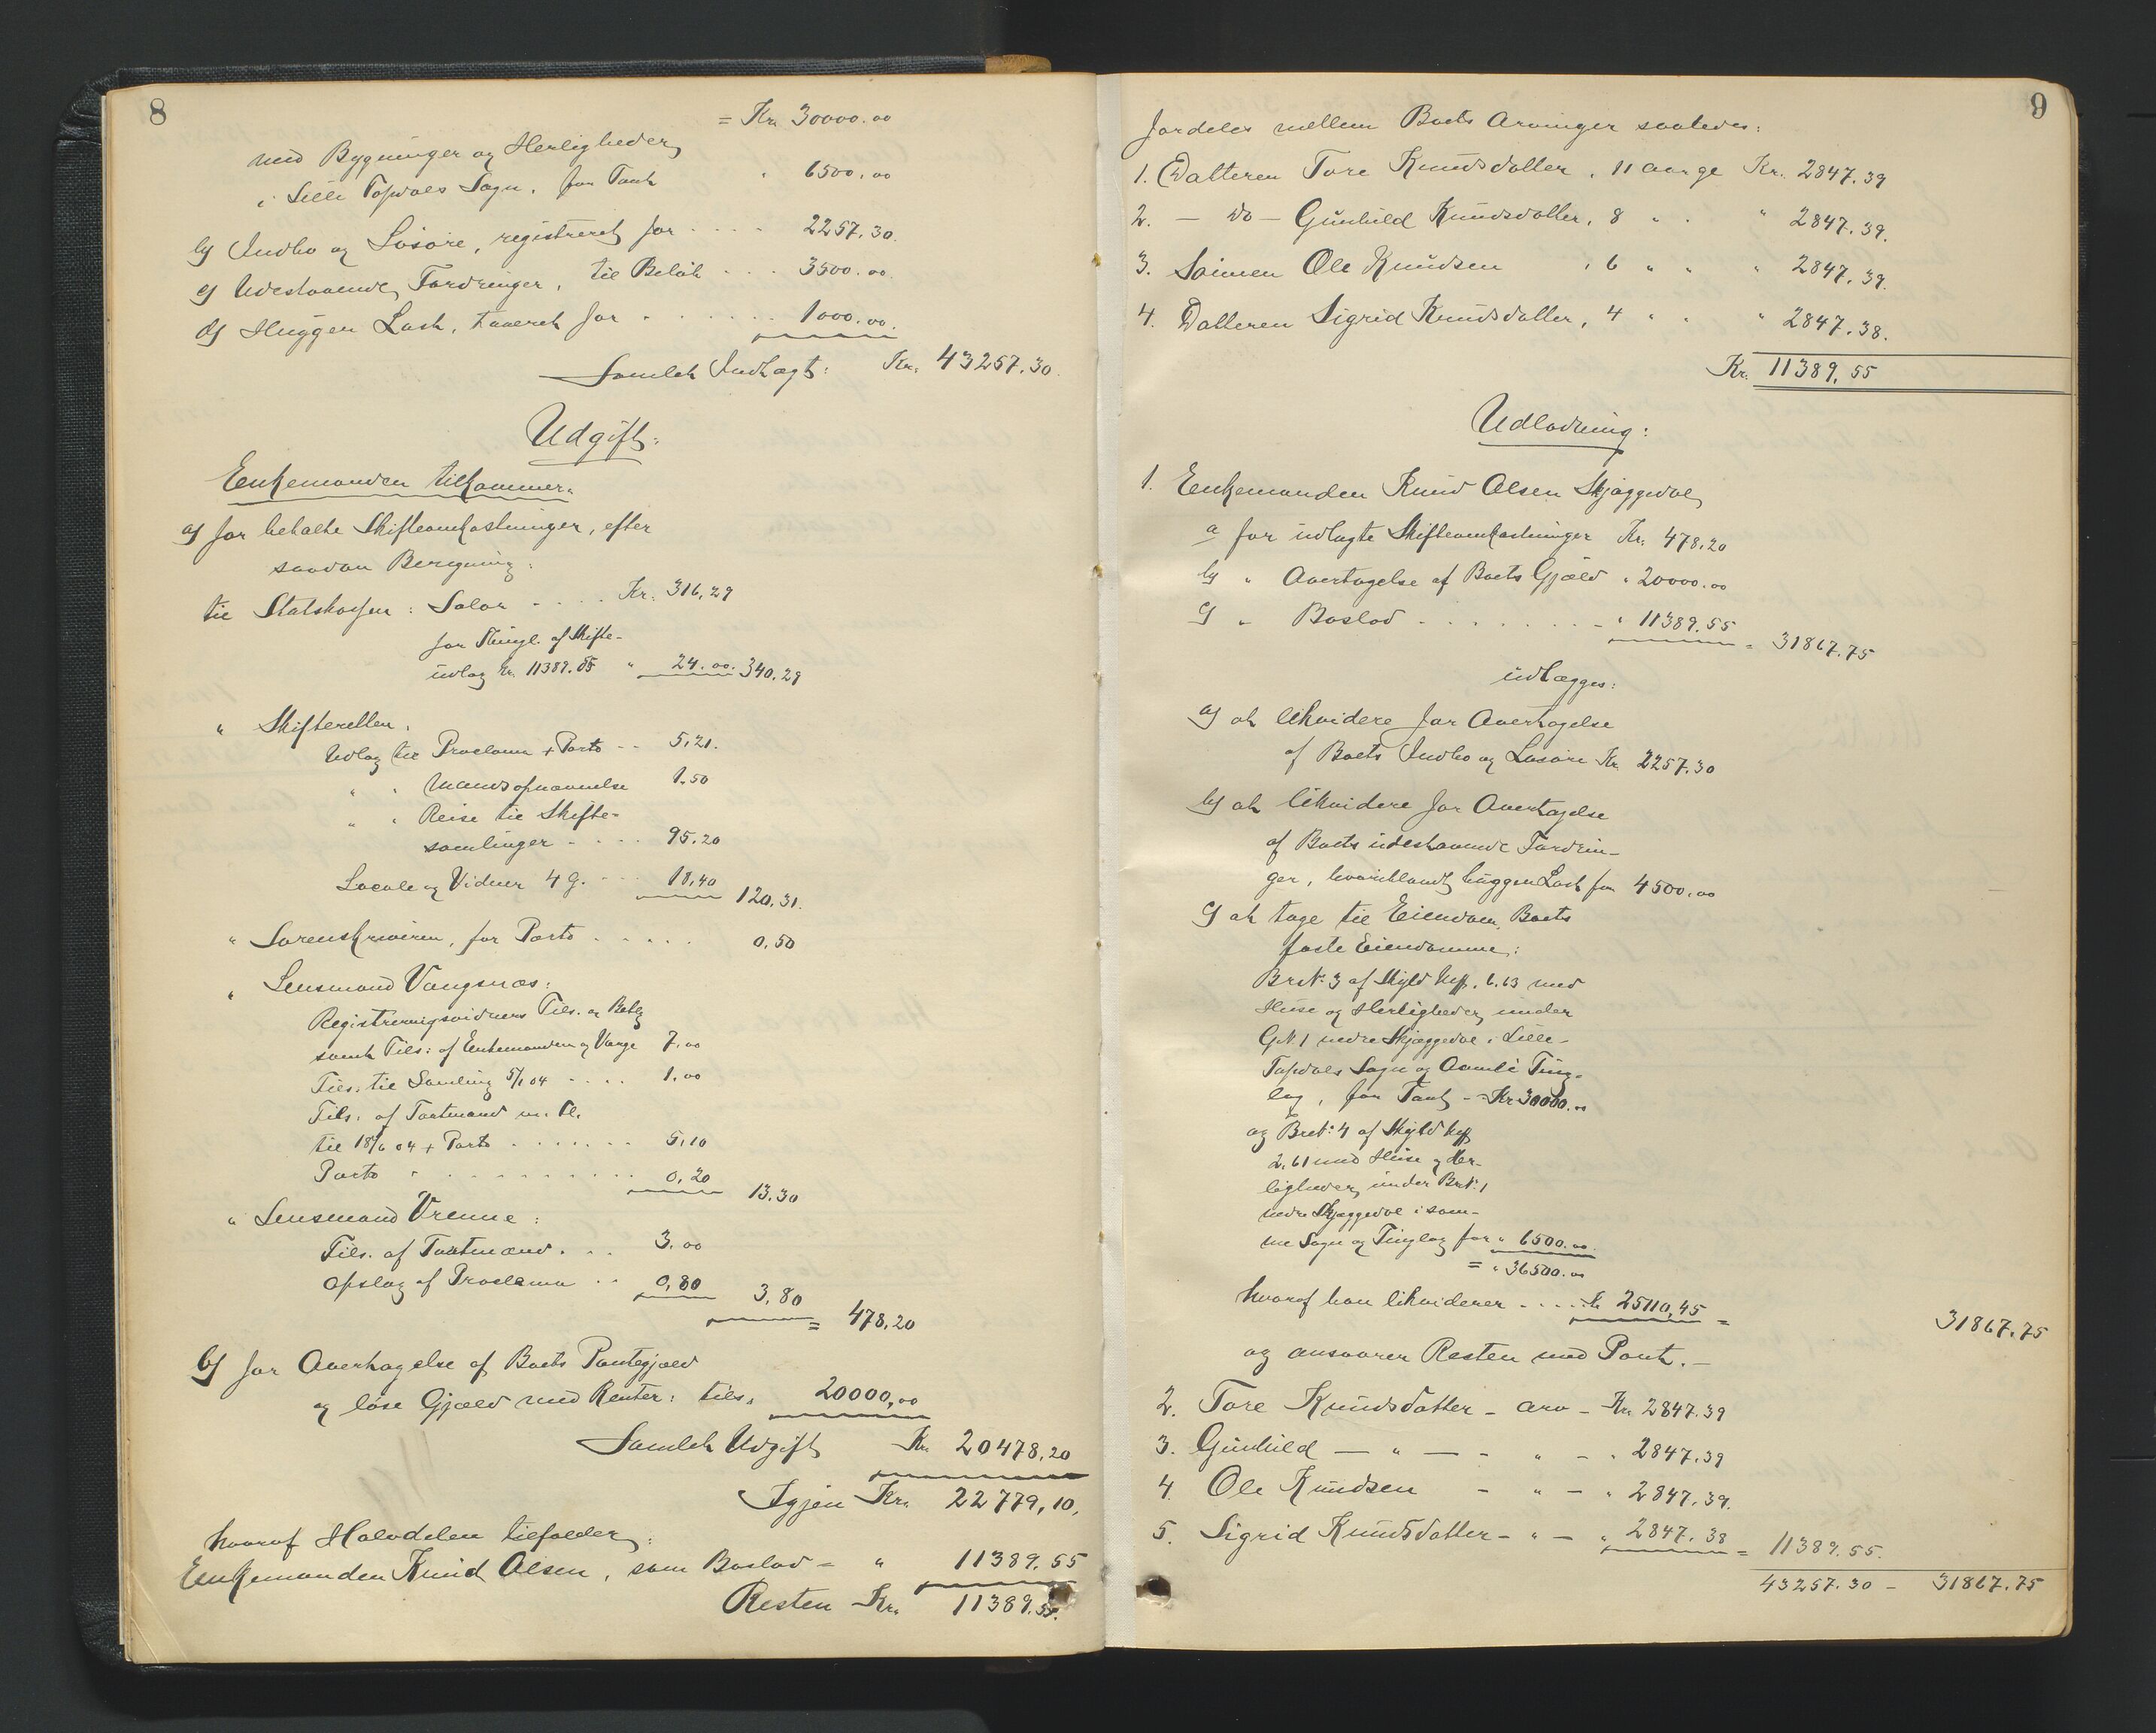 8
= Kr. 30000.00
med Bygninger og Herligheder
i Lille Topdals Sogn, for Taxt " 6500.00
b) Indbo og Løsøre, registreret for . . . . 2257.30.
c) Udestaaende Fordringer, til Beløb . . . 3500.00.
d) Huggen Last, taxeret for . . . . . . 1000.00.
Samlet Indtægt: Kr. 43257.30.
Udgift:
Enkemanden tilkommer:
a) for betalte Skifteomkostninger, efter
saadan Beregning:
til Statskassen: Salær . . . . Kr. 316,29
for Thingl. af Skifte-
udlæg Kr. 11389.55 " 24.00. 340.29
" Skifteretten.
Udlæg til Proclama + Porto - - 5,21.
" " Mandsopnævnelse 1.50
" " Reise til Skifte-
samlinger . . . . 95.20
Locale og Vidner 4 G. . . . 18,40 120,31.
" Sorenskriveren, for Porto . . . . . 0.50
" Lensmand Vangsnæs:
Registreringsvidners Tils. og Betlg
samt Tils: af Enkemanden og Værge 7.00
Tils. til Samling 5/1 04 . . . . 1.00
Tils. af Taxtmænd m. fl.
til 18/6 04 + Porto . . . . . . 5,10
Porto . . . . . . . . . . 0,20 13.30
" Lensmand Vrenne:
Tils. af Taxtmænd . . . 3.00
Opslag af Proclama . . 0,80 3,80
= 478,20
b) for Overtagelse af Boets Pantegjæld
og løse Gjæld med Renter: tils. 20000,00
Samlet Udgift Kr. 20478,20
Igjen Kr. 22779,10.
hvoraf Halvdelen tilfalder:
Enkemanden Knud Olsen, som Boslod = " 11389.55
Resten Kr. 11389.55.
9
fordeles mellem Boets Arvinger saaledes:
1. Datteren Tore Knudsdatter, 11 aar ge Kr. 2847.39
2. — do — Gunhild Knudsdatter, 8 " " " 2847.39.
3. Sønnen Ole Knudsen , 6 " " " 2847.39.
4. Datteren Sigrid Knudsdatter, 4 " " " 2847.38.
Kr. 11389.55
Udlodning:
1. Enkemanden Knud Olsen Skjæggedal
a for udlagte Skifteomkostninger Kr. 478,20
b) " Overtagelse af Boets Gjæld " 20000.00
c) " Boslod . . . . . . . . - " 11389.55 = 31867.75
udlægges:
a) at likvidere for Overtagelse
af Boets Indbo og Løsøre Kr. 2257.30
b) at likvidere for Overtagelse
af Boets udestaaende Fordrin-
ger, hvoriblandt huggen Last for 4500.00
c) at tage til Eiendom Boets
faste Eiendomme:
Brsk. 3 af Skyld 6.63 med
Huse og Herligheder under
GN. 1 nedre Skjæggedal i Lille-
Topdals Sogn og Aamli Ting-
lag, for Taxt - - Kr 30000.00
og Brsk: 4 af Skyld
2,61 med Huse og Her-
ligheder under Brsk: 1
nedre Skjæggedal i sam-
me Sogn og Tinglag for " 6500.00.
= " 36500.00
hvoraf han likviderer . . . . Kr 25110,45 = 31867.75
og ansvarer Resten med Pant. —
2. Tore Knudsdatter - arv - Kr. 2847.39
3. Gunhild — " — - " - " 2847.39
4. Ole Knudsen - " - " 2847.39.
5. Sigrid Knudsdatter - " - " 2847.38 = 11389.55.
43257.30 — 31867.75